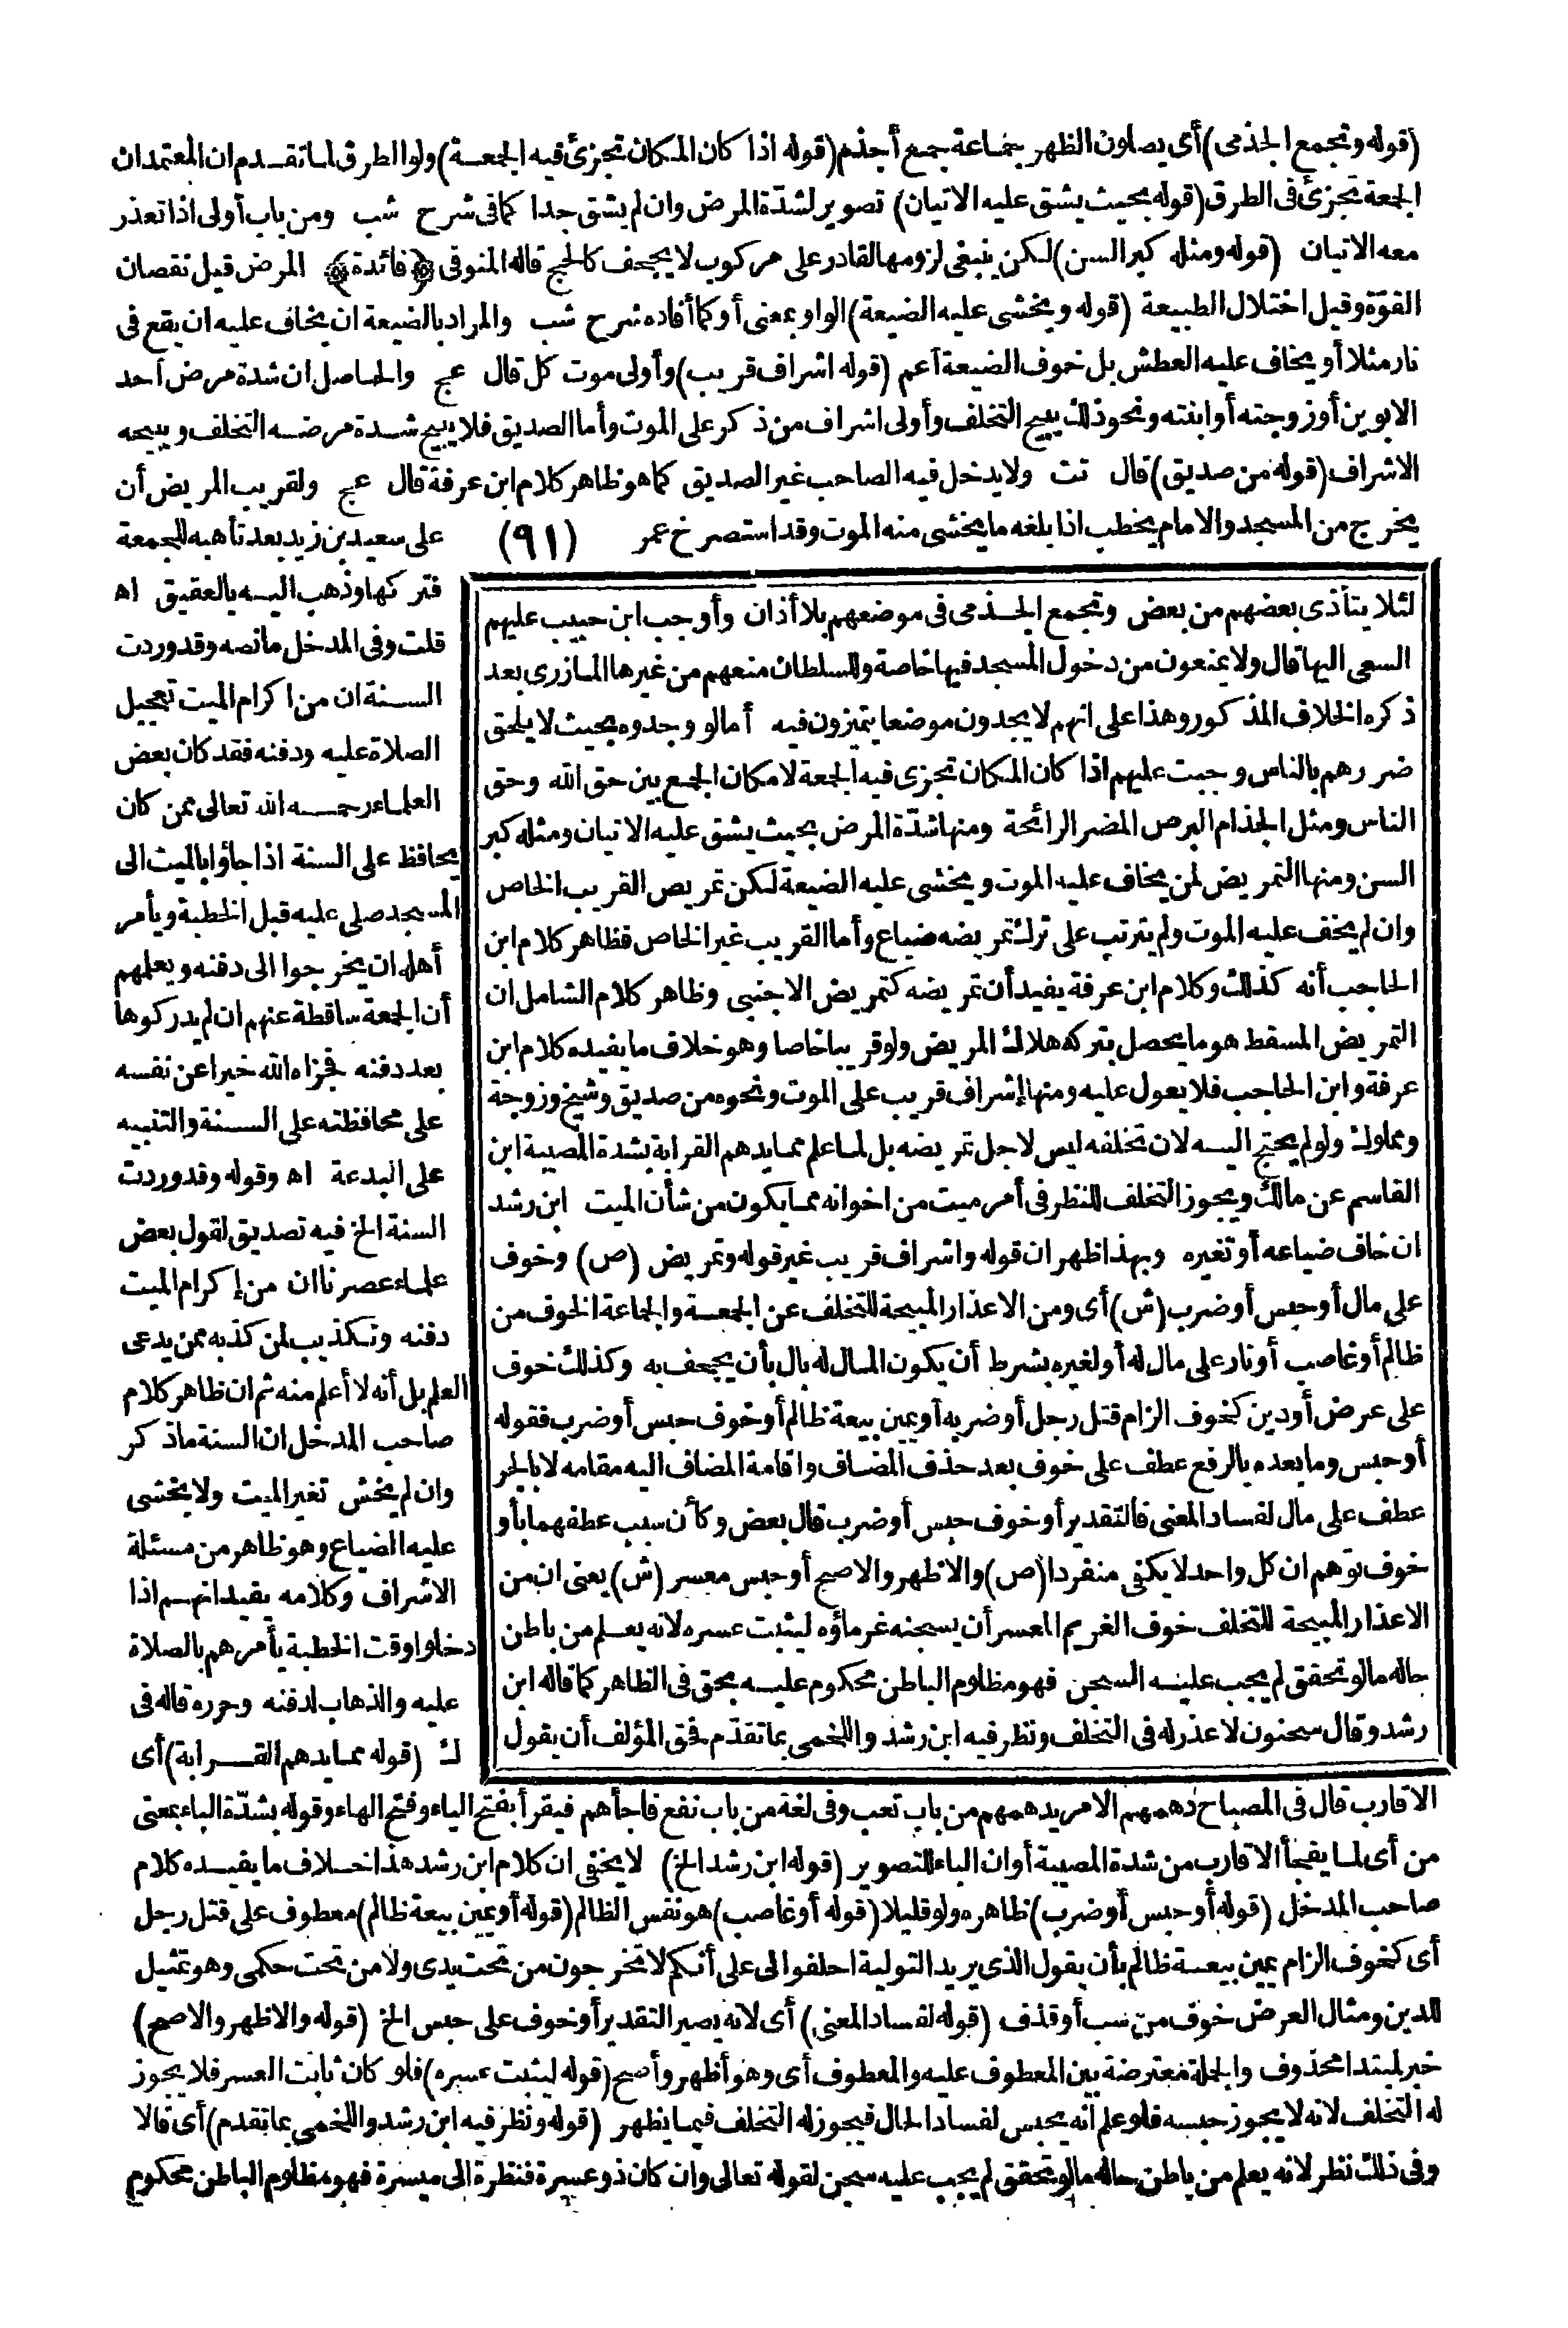 (قوله وتجمع الجذمى) أى يصلون الظهر بجماعة جمع أجذم (قوله اذا كان المكان تجزئ فيه الجمعة) ولو الطرق لما تقدم ان المعتمد ان
الجمعة تجزئ فى الطرق (قوله بحيث يشق عليه الاتيان) تصوير لشدّة المرض وان لم يشق جدا كما فى شرح شب ومن باب أولى اذا تعذر
معه الاتيان (قوله ومثله كبر السن) لكن ينبغى لزومها لقادر على مركوب لا يجحف كالحج قاله المنوفى ﴿فائدة﴾ المرض قيل نقصان
القوّة وقيل اختلال الطبيعة (قوله ويخشى عليه الضيعة) الواو بمعنى أو كما أفاده شرح شب والمراد بالضيعة ان يخاف عليه ان يقع فى
نار مثلا أو يخاف عليه العطش بل خوف الضيعة أعم (قوله اشراف قريب) وأولى موت كل قال عج والحاصل ان شدة مرض أحد
الابوين أو زوجته أو ابنته ونحو ذلك يبيح التخلف وأولى اشراف من ذكر على الموت وأما الصديق فلا يبيح شدة مرضه التخلف ويبيحه
الاشراف (قوله من صديق) قال تت ولا يدخل فيه الصاحب غير الصديق كما هو ظاهر كلام ابن عرفة قال عج ولقريب المريض أن
يخرج من المسجد والامام يخطب اذا بلغه ما يخشى منه الموت وقد استصرخ عمر
(٩١)
على سعيد بن زيد بعد تأهبه للجمعة
فتركها وذهب اليه بالعقيق اه
قلت وفى المدخل مانصه وقد وردت
السنة ان من اكرام الميت تعجيل
الصلاة عليه ودفنه فقد كان بعض
العلماء رحمه الله تعالى ممن كان
يحافظ على السنة اذا جاؤا بالميت الى
المسجد صلى عليه قبل الخطبة ويأمر
أهله ان يخرجوا الى دفنه ويعلمهم
أن الجمعة ساقطة عنهم ان لم يدركوها
بعد دفنه فجزاه الله خيرا عن نفسه
على محافظته على السنة والتنبيه
على البدعة اه وقوله وقد وردت
السنة الخ فيه تصديق لقول بعض
علماء عصرنا ان من إكرام الميت
دفنه وتكذيب لمن كذبه ممن يدعى
العلم بل أنه لا أعلم منه ثم ان ظاهر كلام
صاحب المدخل ان السنة ماذكر
وان لم يخش تغير الميت ولا يخشى
عليه الضياع وهو ظاهر من مسئلة
الاشراف وكلامه يفيد انهم اذا
دخلوا وقت الخطبة يأمرهم بالصلاة
عليه والذهاب لدفنه وحرره قاله فى
ك (قوله مما يدهم القرابة) أى
لئلا يتأذى بعضهم من بعض وتجمع الجذمى فى موضعهم بلا أذان وأوجب ابن حبيب عليهم
السعى اليها قال ولا يمنعون من دخول المسجد فيها خاصة وللسلطان منعهم من غيرها المازرى بعد
ذكره الخلاف المذكور وهذا على انهم لا يجدون موضعا يتميزون فيه أما لو وجدوه بحيث لا يلحق
ضررهم بالناس وجبت عليهم اذا كان المكان تجزى فيه الجمعة لامكان الجمع بين حق الله وحق
الناس ومثل الجذام البرص المضر الرائحة ومنها شدّة المرض بحيث يشق عليه الاتيان ومثله كبر
السن ومنها التمريض لمن يخاف عليه الموت ويخشى عليه الضيعة لكن تمريض القريب الخاص
وان لم يخف عليه الموت ولم يترتب على ترك تمريضه ضياع وأما القريب غير الخاص فظاهر كلام ابن
الحاجب أنه كذلك وكلام ابن عرفة يفيد أن تمريضه كتمريض الاجنبى وظاهر كلام الشامل ان
التمريض المسقط هو ما يحصل بتركه هلاك المريض ولو قريبا خاصا وهو خلاف ما يفيده كلام ابن
عرفة وابن الحاجب فلا يعول عليه ومنها إشراف قريب على الموت ونحوه من صديق وشيخ وزوجة
ومملوك ولو لم يحتج اليه لان تخلفه ليس لاجل تمريضه بل لما علم مما يدهم القرابة بشدة المصيبة ابن
القاسم عن مالك ويجوز التخلف للنظر فى أمر ميت من اخوانه مما يكون من شأن الميت ابن رشد
ان خاف ضياعه أو تغيره وبهذا ظهر ان قوله واشراف قريب غير قوله وتمريض (ص) وخوف
على مال أو حبس أو ضرب (ش) أى ومن الاعذار المبيحة للتخلف عن الجمعة والجماعة الخوف من
ظالم أو غاصب أو نار على مال له أو لغيره بشرط أن يكون المال له بال بأن يجحف به وكذلك خوف
على عرض أو دين كخوف الزام قتل رجل أو ضربه أو يمين بيعة ظالم أو خوف حبس أو ضرب فقوله
أو حبس وما بعده بالرفع عطف على خوف بعد حذف المضاف واقامة المضاف اليه مقامه لا بالجر
عطف على مال لفساد المعنى فالتقدير أو خوف حبس أو ضرب قال بعض وكأن سبب عطفهما بأو
خوف توهم ان كل واحد لا يكفى منفردا (ص) والاظهر والاصح أو حبس معسر (ش) يعنى ان من
الاعذار المبيحة للتخلف خوف الغريم المعسر أن يسجنه غرماؤه ليثبت عسره لانه يعلم من باطن
حاله ما لو تحقق لم يجب عليه السجن فهو مظلوم الباطن محكوم عليه بحق فى الظاهر كما قاله ابن
رشد وقال سحنون لا عذر له فى التخلف ونظر فيه ابن رشد واللخمى بما تقدّم فحق المؤلف أن يقول
الاقارب قال فى المصباح دهمهم الامر يدهمهم من باب تعب وفى لغة من باب نفع فاجأهم فيقرأ بفتح الياء وفتح الهاء وقوله بشدّة الباء بمعنى
من أى لما يفجأ الاقارب من شدة المصيبة أو ان الباء للتصوير (قوله ابن رشد الخ) لا يخفى ان كلام ابن رشد هذا خلاف ما يفيده كلام
صاحب المدخل (قوله أو حبس أو ضرب) ظاهره ولو قليلا (قوله أو غاصب) هو نفس الظالم (قوله أو يمين بيعة ظالم) معطوف على قتل رجل
أى كخوف الزام يمين بيعة ظالم بأن يقول الذى يريد التولية احلفوا لى على أنكم لا تخرجون من تحت يدى ولا من تحت حكمى وهو تمثيل
للدين ومثال العرض خوف من سب أو قذف (قوله لفساد المعنى) أى لانه يصير التقدير أو خوف على حبس الخ (قوله والاظهر والاصح)
خبر لمبتدا محذوف والجملة معترضة بين المعطوف عليه والمعطوف أى وهو أظهر وأصح (قوله ليثبت عسره) فلو كان ثابت العسر فلا يجوز
له التخلف لانه لا يجوز حبسه فلو علم أنه يحبس لفساد الحال فيجوز له التخلف فيما يظهر (قوله ونظر فيه ابن رشد واللخمى بما تقدم) أى قالا
وفى ذلك نظر لانه يعلم من باطن حاله ما لو تحقق لم يجب عليه سجن لقوله تعالى وان كان ذو عسرة فنظرة الى ميسرة فهو مظلوم الباطن محكوم